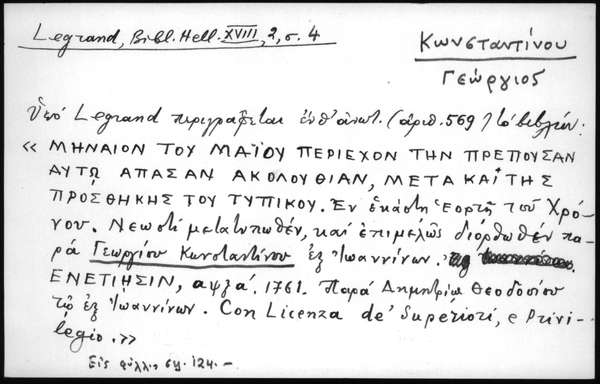 Legrand, Bibl. Hell. XVIII, 2, σ. 4
Κωνσταντίνου
Γεώργιος
Ὑπό Legrand περιγράφεται ἐνθ' ἀνωτ. (ἀριθ. 569) τό βιβλίον:
« ΜΗΝΑΙΟΝ ΤΟΥ ΜΑΪΟΥ ΠΕΡΙΕΧΟΝ ΤΗΝ ΠΡΕΠΟΥΣΑΝ
ΑΥΤῼ ΑΠΑΣΑΝ ΑΚΟΛΟΥΘΙΑΝ, ΜΕΤΑ ΚΑΙ ΤΗΣ
ΠΡΟΣΘΗΚΗΣ ΤΟΥ ΤΥΠΙΚΟΥ. Ἐν ἑκάστῃ Ἑορτῇ τοῦ Χρό-
νου. Νεωστί μετατυπωθέν, καί ἐπιμελῶς διορθωθέν πα-
ρά Γεωργίου Κωνσταντίνου ἐξ Ἰωαννίνων.
ΕΝΕΤΙΗΣΙΝ, αψξά. 1761. Παρά Δημητρίῳ Θεοδοσίου
τῷ ἐξ Ἰωαννίνων. Con Licenza de' Superiori, e Privi-
legio.»
Εἰς φύλλον σχ. 124. –